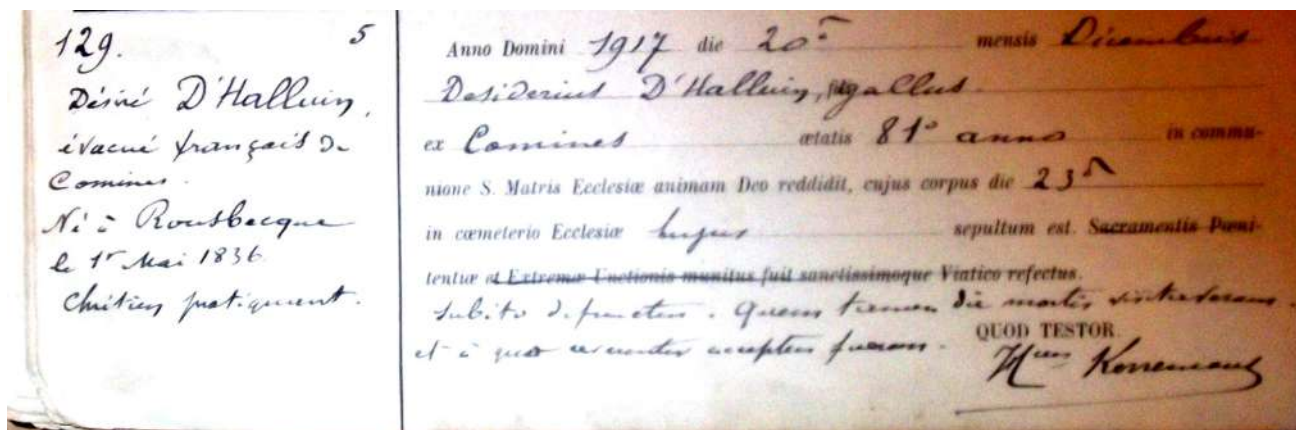 129. 5
Désiré D'Halluin,
évacué français de
Comines.
Né à Rousbecque
le 1r Mai 1836.
Chrétien pratiquant.
Anno Domini 1917 die 20a mensis Decembris
Desiderius D'Halluin, gallus.
ex Comines ætatis 81o anno in commu-
nione S. Matris Ecclesiæ animam Deo reddidit, cujus corpus die 23a
in cœmeterio Ecclesiæ hujus sepultum est. Sacramentis Pœni-
tentiæ et Extremæ Unctionis munitus fuit sanctissimoque Viatico refectus.
Subito defunctus. Quem tamen die mortis
et a quo acceptus fueram.
QUOD TESTOR.